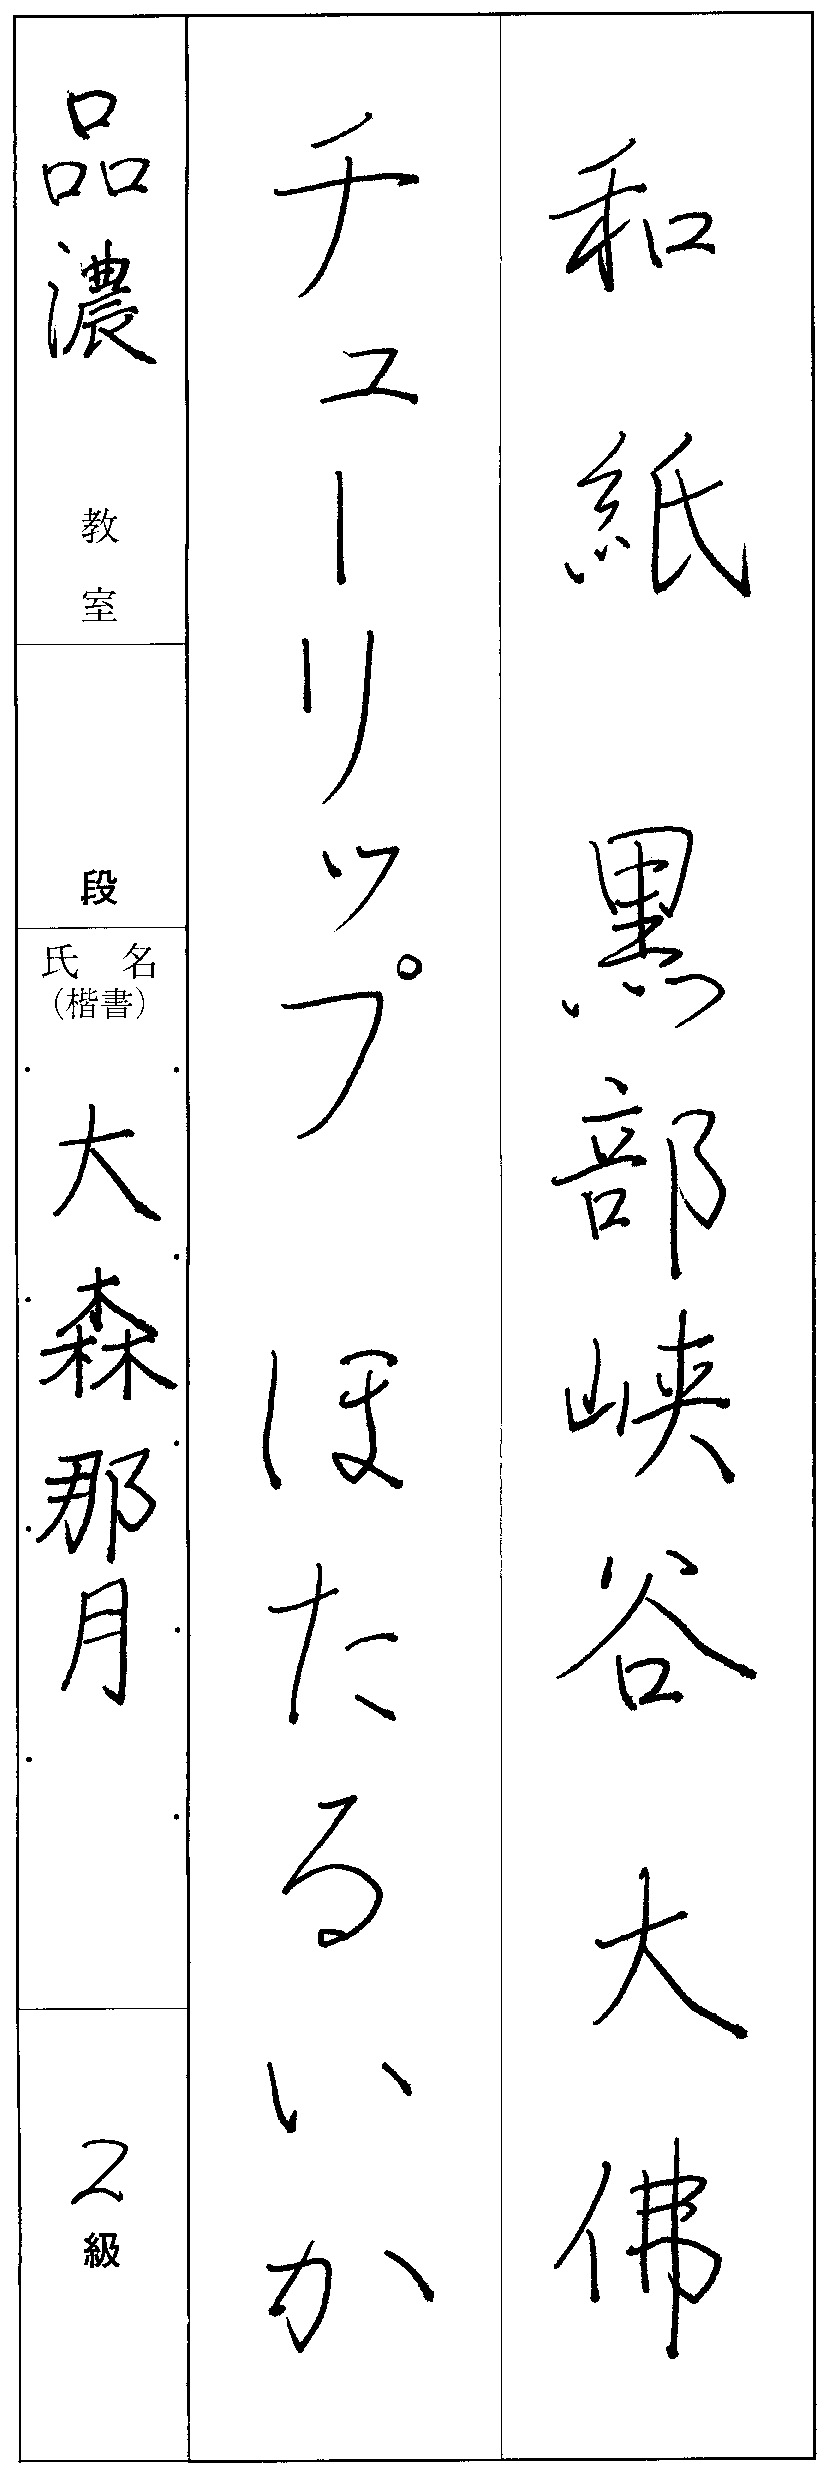 和紙　黒部峡谷　大佛
チューリップ　ほたるいか
品濃教室
段
氏名
（楷書）
大森那月
2級